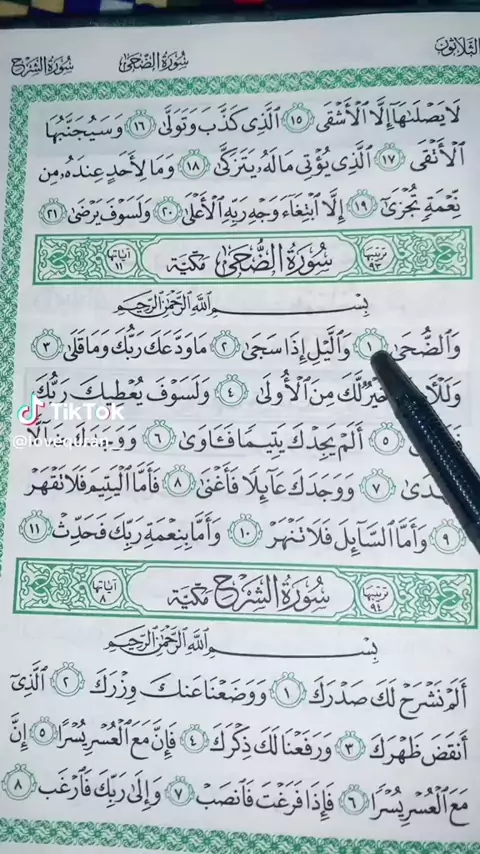 الثلاثون
سُورَةُ الضُّحَىٰ
سُورَةُ الشَّرْحِ
لَا يَصْلَىٰهَآ إِلَّا ٱلْأَشْقَى ١٥ ٱلَّذِى كَذَّبَ وَتَوَلَّىٰ ١٦ وَسَيُجَنَّبُهَا
ٱلْأَتْقَى ١٧ ٱلَّذِى يُؤْتِى مَالَهُۥ يَتَزَكَّىٰ ١٨ وَمَا لِأَحَدٍ عِندَهُۥ مِن
نِّعْمَةٍ تُجْزَىٰٓ ١٩ إِلَّا ٱبْتِغَآءَ وَجْهِ رَبِّهِ ٱلْأَعْلَىٰ ٢٠ وَلَسَوْفَ يَرْضَىٰ ٢١
ترتيبها ٩٣ سُورَةُ الضُّحَىٰ مَكِّيَّة آياتها ١١
بِسْمِ ٱللَّهِ ٱلرَّحْمَٰنِ ٱلرَّحِيمِ
وَٱلضُّحَىٰ ١ وَٱلَّيْلِ إِذَا سَجَىٰ ٢ مَا وَدَّعَكَ رَبُّكَ وَمَا قَلَىٰ ٣
خَيْرٌ لَّكَ مِنَ ٱلْأُولَىٰ ٤ وَلَسَوْفَ يُعْطِيكَ رَبُّكَ
٥ أَلَمْ يَجِدْكَ يَتِيمًا فَـَٔاوَىٰ ٦
٧ وَوَجَدَكَ عَآئِلًا فَأَغْنَىٰ ٨ فَأَمَّا ٱلْيَتِيمَ فَلَا تَقْهَرْ
٩ وَأَمَّا ٱلسَّآئِلَ فَلَا تَنْهَرْ ١٠ وَأَمَّا بِنِعْمَةِ رَبِّكَ فَحَدِّثْ ١١
TikTok
@lovequran
ترتيبها ٩٤ سُورَةُ الشَّرْحِ مَكِّيَّة آياتها ٨
بِسْمِ ٱللَّهِ ٱلرَّحْمَٰنِ ٱلرَّحِيمِ
أَلَمْ نَشْرَحْ لَكَ صَدْرَكَ ١ وَوَضَعْنَا عَنكَ وِزْرَكَ ٢ ٱلَّذِىٓ
أَنقَضَ ظَهْرَكَ ٣ وَرَفَعْنَا لَكَ ذِكْرَكَ ٤ فَإِنَّ مَعَ ٱلْعُسْرِ يُسْرًا ٥ إِنَّ
مَعَ ٱلْعُسْرِ يُسْرًا ٦ فَإِذَا فَرَغْتَ فَٱنصَبْ ٧ وَإِلَىٰ رَبِّكَ فَٱرْغَب ٨